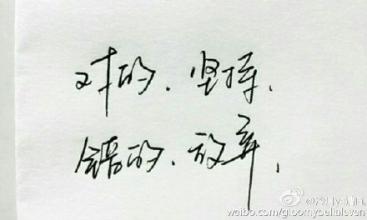 对的、坚持、
错的、放弃、
weibo.com/gloomyseliaievan